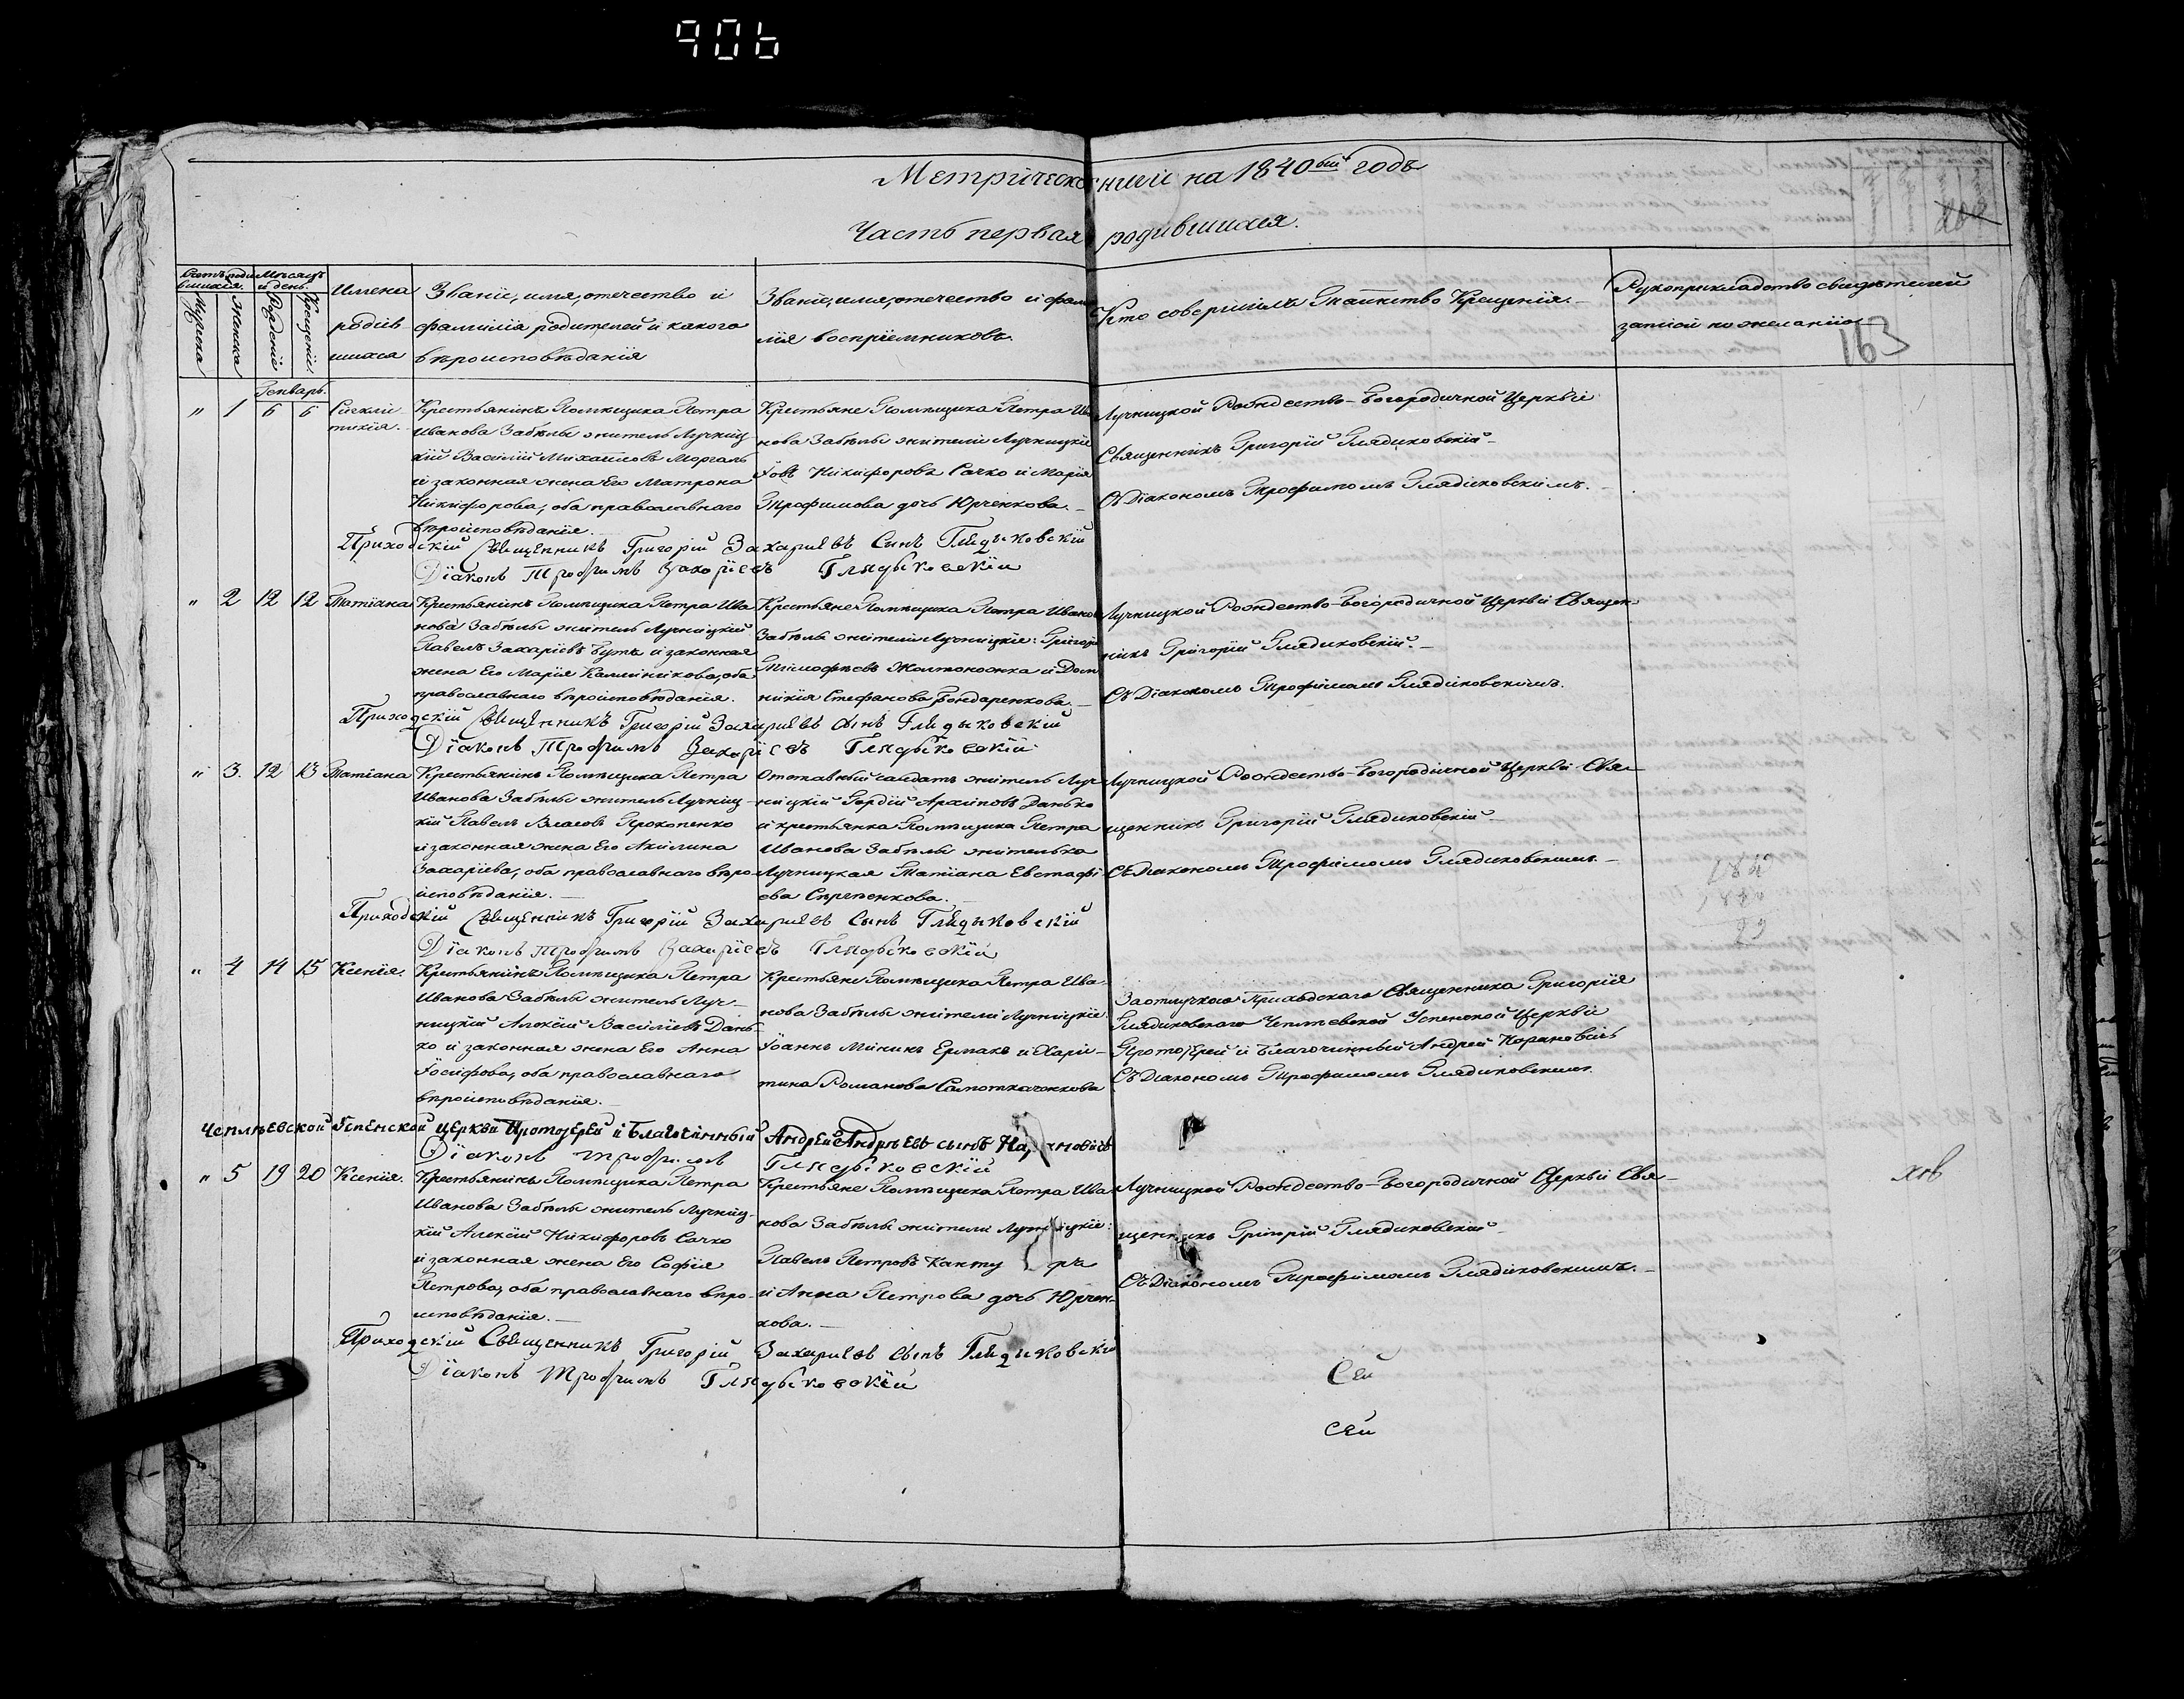 906
Метрической книги на 1840ый годъ
Часть первая родившихся.
163
Счетъ родившихся.
Мужеска
Женска
Мѣсяцъ и день.
Рожденіе
Крещеніе
Имена родившихся
Званіе, имя, отечество и
фамилія родителей и какого
вѣроисповѣданія
Званіе, имя, отечество и фами-
лія воспріемниковъ.
Кто совершилъ Таинство Крещенія.
Рукоприкладство свидѣтелей
записи по желанію
Генварь.
" 1 6 6
Сигкли-
тикія.
Крестьянинъ Помѣщика Петра
Иванова Забѣлы житель Лучниц-
кій Василій Михайловъ Моргаль
и законная жена Его Матрона
Никифорова, оба православнаго
вѣроисповѣданія.
Крестьяне Помѣщика Петра Ива
нова Забѣлы жители Лучницкіе
Іовъ Никифоровъ Сачко и Марія
Трофимова дочь Юрченкова.
Лучницкой Рождество-Богородичной Церкви
Священникъ Григорій Глядиковскій
Съ Діакономъ Трофимомъ Глядиковскимъ.
Приходскій Священникъ Григорій Захаріевъ Сынъ Глядыковскій
Діаконъ Трофимъ Захаріевъ Глядыковскій
" 2 12 12 Татіана
Крестьянинъ Помѣщика Петра Ива
нова Забѣлы житель Лучницкій
Павелъ Захаріевъ Бутъ и законная
жена Его Марія Каллиникова, оба
православнаго вѣроисповѣданія.
Крестьяне Помѣщика Петра Иванова
Забѣлы жители Лучницкіе: Григорій
Тимофѣевъ Жолтоножка и Дом
никія Стефанова Бондаренкова.
Лучницкой Рождество-Богородичной Церкви Священ-
никъ Григорій Глядиковскій.
Съ Діакономъ Трофимомъ Глядиковскимъ.
Приходскій Священникъ Григорій Захаріевъ Сынъ Глядыковскій
Діаконъ Трофимъ Захаріевъ Глядыковскій
" 3. 12 13 Татіана
Крестьянинъ Помѣщика Петра
Иванова Забѣлы житель Лучниц-
кій Павелъ Власовъ Прокопенко
и законная жена Его Акилина
Захаріева, оба православнаго вѣро-
исповѣданія.
Отставный салдатъ житель Луч-
ницкій Гордій Архиповъ Данько
и крестьянка Помѣщика Петра
Иванова Забѣлы жителька
Лучницкая Татіана Евстафі-
ева Сергѣенкова.
Лучницкой Рождество-Богородичной Церкви Свя-
щенникъ Григорій Глядиковскій
Съ Діакономъ Трофимомъ Глядиковскимъ.
Приходскій Священникъ Григорій Захаріевъ Сынъ Глядыковскій
Діаконъ Трофимъ Захаріевъ Глядыковскій
" 4 14 15 Ксенія.
Крестьянинъ Помѣщика Петра
Иванова Забѣлы житель Луч-
ницкій Алексій Василіевъ Дань-
ко и законная жена Его Анна
Іосифова, оба православнаго
вѣроисповѣданія.
Крестьяне Помѣщика Петра Ива-
нова Забѣлы жители Лучницкіе:
Іоаннъ Мининъ Ермакъ и Хари-
тина Романова
За отлучкою Приходскаго Священника Григорія
Глядиковскаго Чеплѣевской Успенской Церкви
Протоіерей и Благочинный Андрей
Съ Діакономъ Трофимомъ Глядиковскимъ.
Чеплѣевской Успенской Церкви Протоіерей и Благочинный Андрей Андрѣевъ сынъ
Діаконъ Трофимъ Глядыковскій
" 5 19 20 Ксенія.
Крестьянинъ Помѣщика Петра
Иванова Забѣлы житель Лучниц-
кій Алексій Никифоровъ Сачко
и законная жена Его Софія
Петрова, оба православнаго вѣро-
исповѣданія.
Крестьяне Помѣщика Петра Ива
нова Забѣлы жители Лучницкіе:
Павелъ Петровъ
и Анна Петрова дочь Юрчен-
кова.
Лучницкой Рождество-Богородичной Церкви Свя-
щенникъ Григорій Глядиковскій
Съ Діакономъ Трофимомъ Глядиковскимъ.
Приходскій Священникъ Григорій Захаріевъ Сынъ Глядыковскій
Діаконъ Трофимъ Глядыковскій
Сей
сей